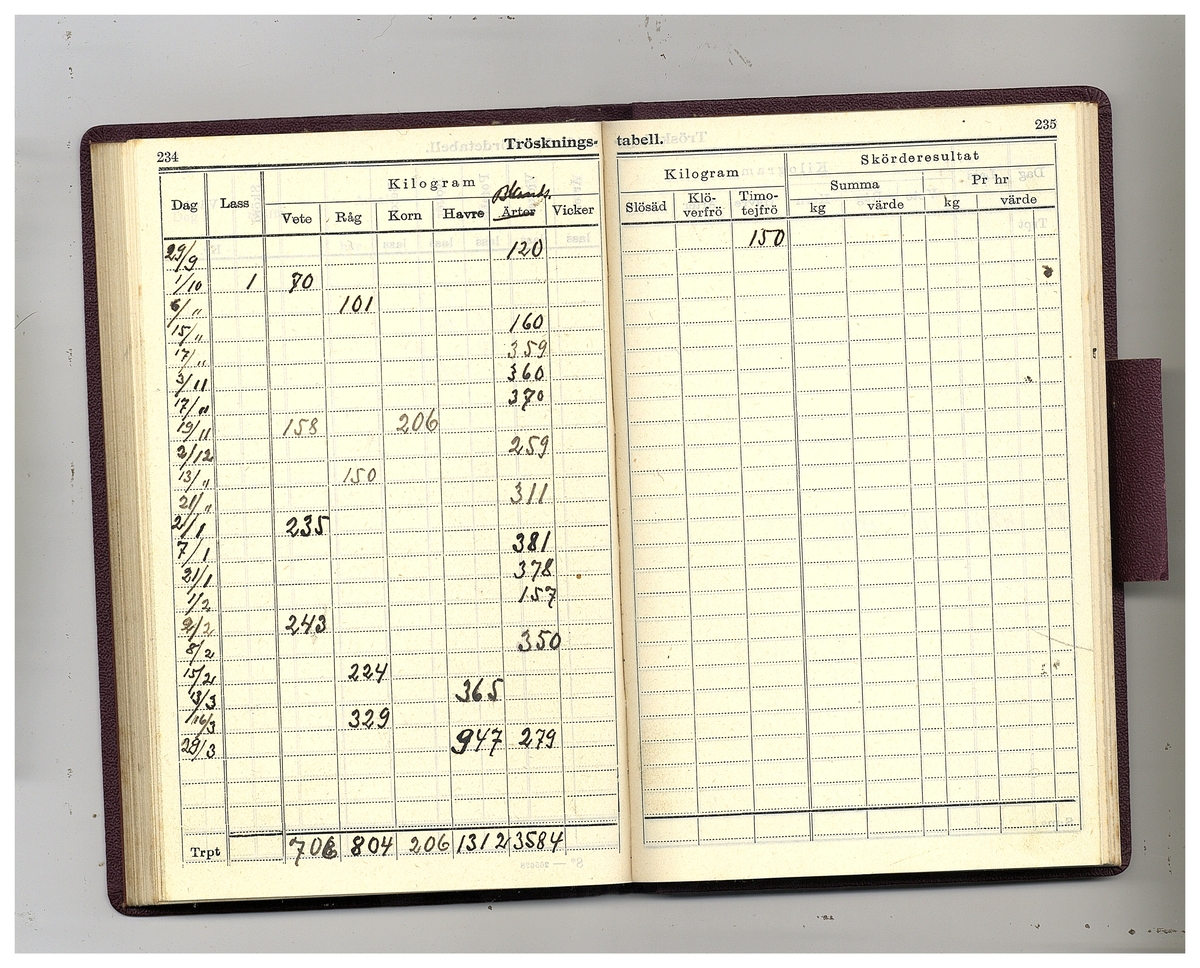 234
Trösknings-
Kilogram
Dag Lass Vete Råg Korn Havre Blands. Ärter Vicker
29/9 120
1/10 1 70
6/„ 101
15/„ 160
17/„ 359
3/11 360
17/„ 370
19/11 158 206
2/12 259
13/„ 150
21/„ 311
2/1 235
7/1 381
21/1 378
1/2 157
2/2 243
8/2 350
15/2 224
13/3 365
16/3 329
29/3 947 279
Trpt 706 804 206 1312 3584
tabell.
235
Kilogram Skörderesultat
Summa Pr hr
Slösäd Klö-verfrö Timo-tejfrö kg värde kg värde
150